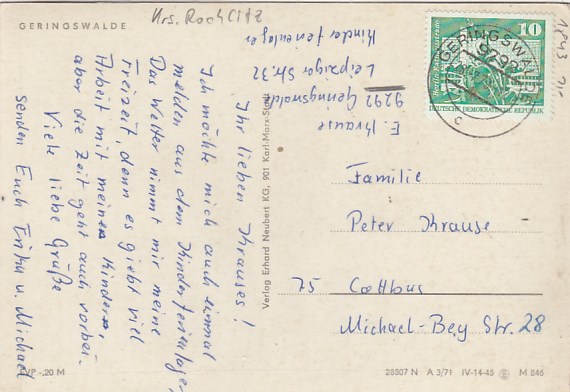 GERINGSWALDE
Krs. Rochlitz
Ihr lieben Krauses!
Ich möchte mich auch einmal
melden aus dem Kinderferienlager,
Das Wetter nimmt mir meine
Freizeit, denn es giebt viel
Arbeit mit meinen Kindern,
aber die Zeit geht auch vorbei.
Viele liebe Grüße
senden Euch Erika u. Michael
E. Krause
9292 Geringswalde
Leipziger Str. 32
Kinderferienlager
10
DEUTSCHE DEMOKRATISCHE REPUBLIK
GERINGSWALDE
Familie
Peter Krause
75 Cottbus
Michael-Bey Str. 28
Verlag Erhard Neubert KG, 901 Karl-Marx-Stadt
EVP -,20 M
28507 N A 3/71 IV-14-45 M 846